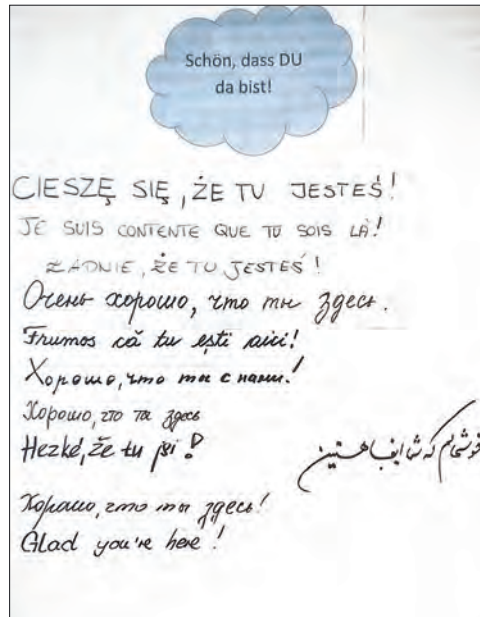 Schön, dass DU
da bist!
CIESZĘ SIĘ, ŻE TU JESTEŚ!
JE SUIS CONTENTE QUE TU SOIS LÀ!
ŁADNIE, ŻE TU JESTEŚ!
Очень хорошо, что ты здесь.
Frumos că tu ești aici!
Хорошо, что ты с нами!
Хорошо, что ты здесь
Hezké, že tu jsi!
خوشحالم که شما اینجا هستین
Хорошо, что ты здесь!
Glad you're here!